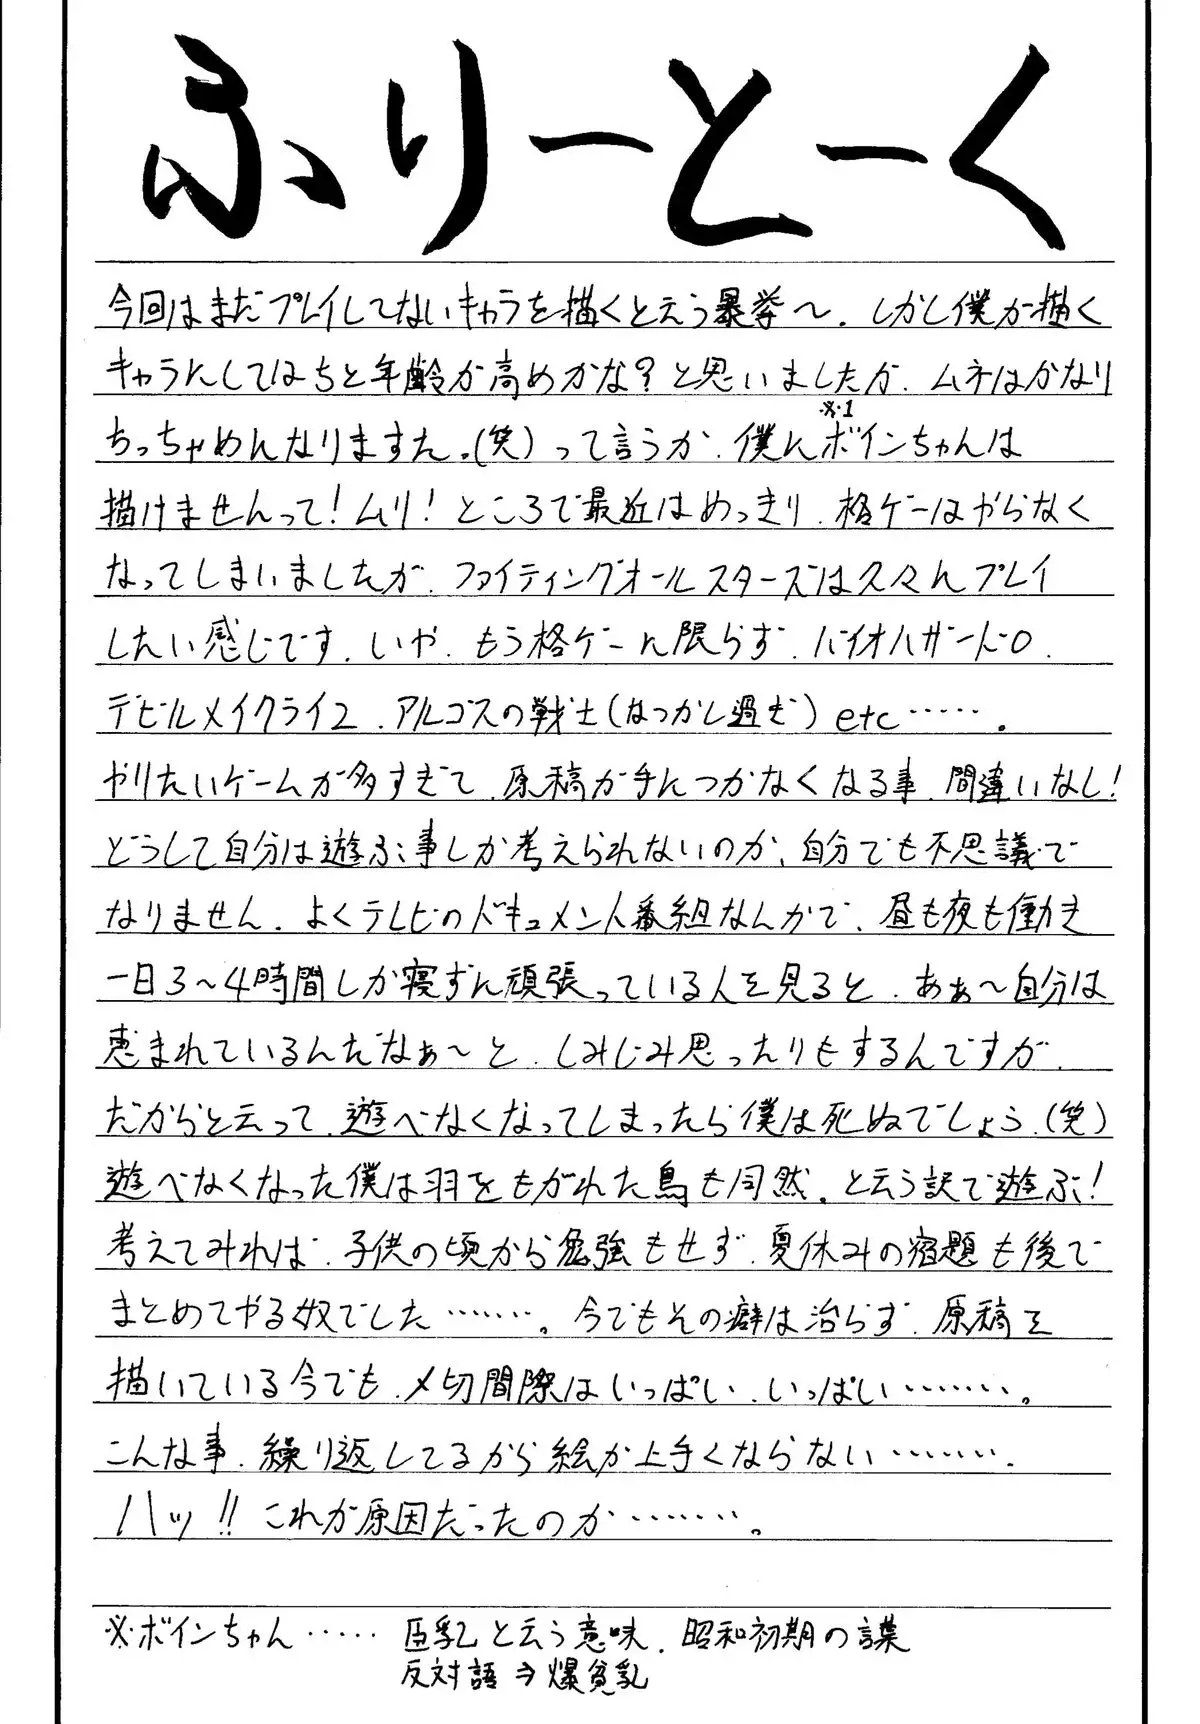 ふりーとーく
今回はまだプレイしてないキャラを描くと云う暴挙〜.しかし僕が描く
キャラにしてはちと年齢が高めかな?と思いましたが.ムネはかなり
※1
ちっちゃめんなりますた。(笑)って言うか.僕にボインちゃんは
描けませんって!ムリ!ところで最近はめっきり.格ゲーはやらなく
なってしまいましたが.ファイティングオールスターズは久々にプレイ
したい感じです.いや.もう格ゲーに限らず.バイオハザード0.
デビルメイクライ2.アルゴスの戦士(なつかし過ぎ)etc……。
やりたいゲームが多すぎて.原稿が手につかなくなる事.間違いなし!
どうして自分は遊ぶ事しか考えられないのか、自分でも不思議で
なりません.よくテレビのドキュメント番組なんかで.昼も夜も働き
一日3〜4時間しか寝ずに頑張っている人を見ると.あぁ〜自分は
恵まれているんだなぁ〜と.しみじみ思ったりもするんですが.
だからと云って.遊べなくなってしまったら僕は死ぬでしょう.(笑)
遊べなくなった僕は羽をもがれた鳥も同然。と云う訳で遊ぶ!
考えてみれば.子供の頃から勉強もせず.夏休みの宿題も後で
まとめてやる奴でした………。今でもその癖は治らず.原稿を
描いている今でも.〆切間際はいっぱいいっぱい………。
こんな事.繰り返してるから絵が上手くならない……….
ハッ!!これが原因だったのか………。
※ボインちゃん…… 巨乳と云う意味.昭和初期の言葉
反対語⇒爆貧乳